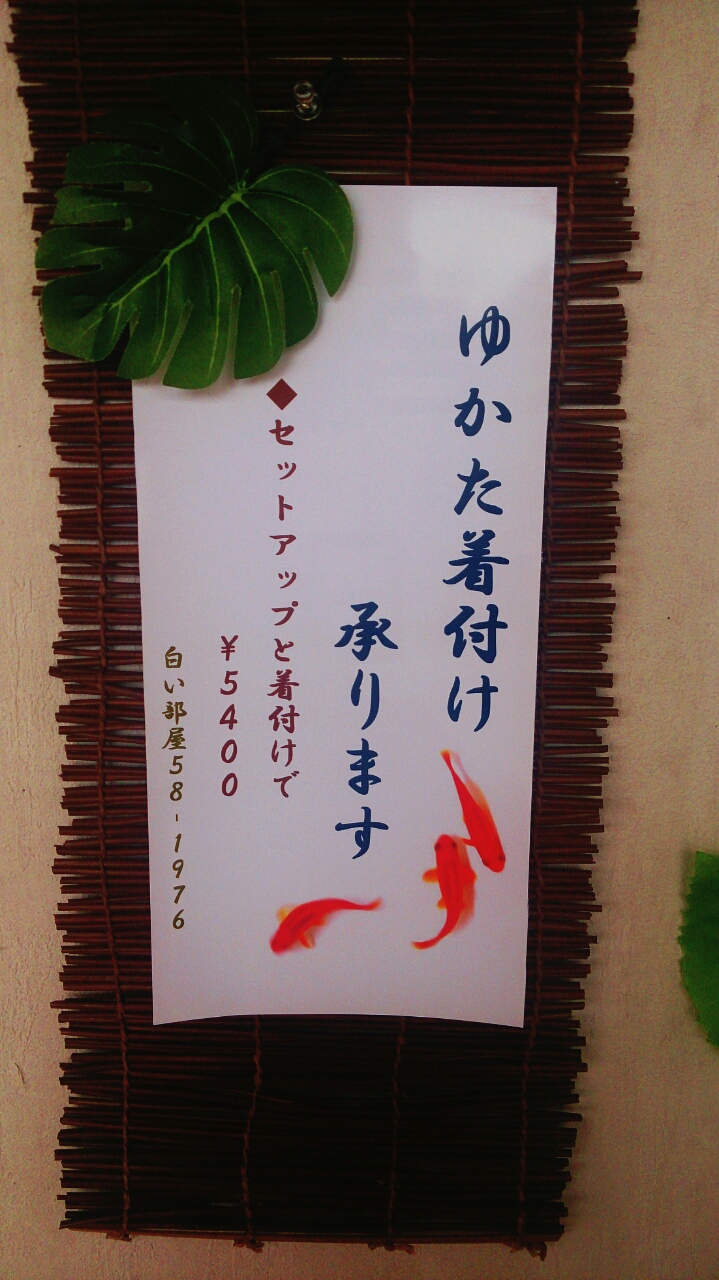 ゆかた着付け
承ります
◆セットアップと着付けで
¥5400
白い部屋58-1976